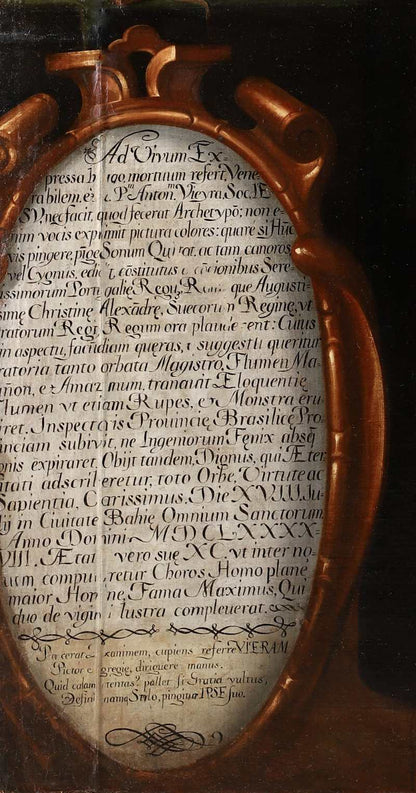 Ad Vivum Ex-
pressa imago, mortuum refert Vene-
rabilem, P.m Anton.m Vieyra Soc. IE
SV, nec facit, quod fecerat Archetypô: non e-
nim vocis exprimit pictura colores: quare si Huc
vis pingere, pige Sonum Qui tot, ac tam canoros
vel Cygnus, edidit, côstitutus côcionibus Sere-
issimorum Portugalię Regû, Romę que Augusti-
simę Christinę Alexâdrę, Suecorum Reginę, vt
ratorum Regi Regum ora plauderent: Cuius
in aspectu, facūdiam queras, suggestû queritur
ratoria tanto orbata Magistro, Flumen Ma-
ñon, e Amazonum, tranavit Æloquentię
flumen vt etiam Rupes, et Monstra eru
iret, Inspectoris Provincię Brasilicę Pro
nciam subivit, ne Ingeniorum Fenix absq3
onis expiraret. Obijt tandem, Dignus, qui Æter
itati adscriberetur, toto Orbe, Virtute ac
Sapientia, Clarissimus, Die XVIII Ju-
lij in Ciuitate Bahię Omnium Sanctorum
Anno Domini M DC LXXXX-
VIII. Ætat vero suę XC, vt inter no-
uem computaretur Choros Homo plane
maior Homine, Fama Maximus, Qui
duo de viginti lustra compleuerat.
Pinxerat Exanimem, cupiens referre VIERAM
Pictor egregię, diriguere manus.
Quid calamo tentas? pallet si Gratia vultus,
Definamq Stylo, pingitur IPSE suo.